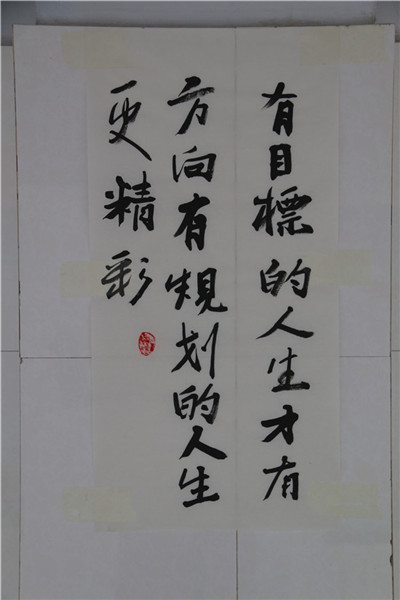 有目標的人生才有
方向有規划的人生
更精彩